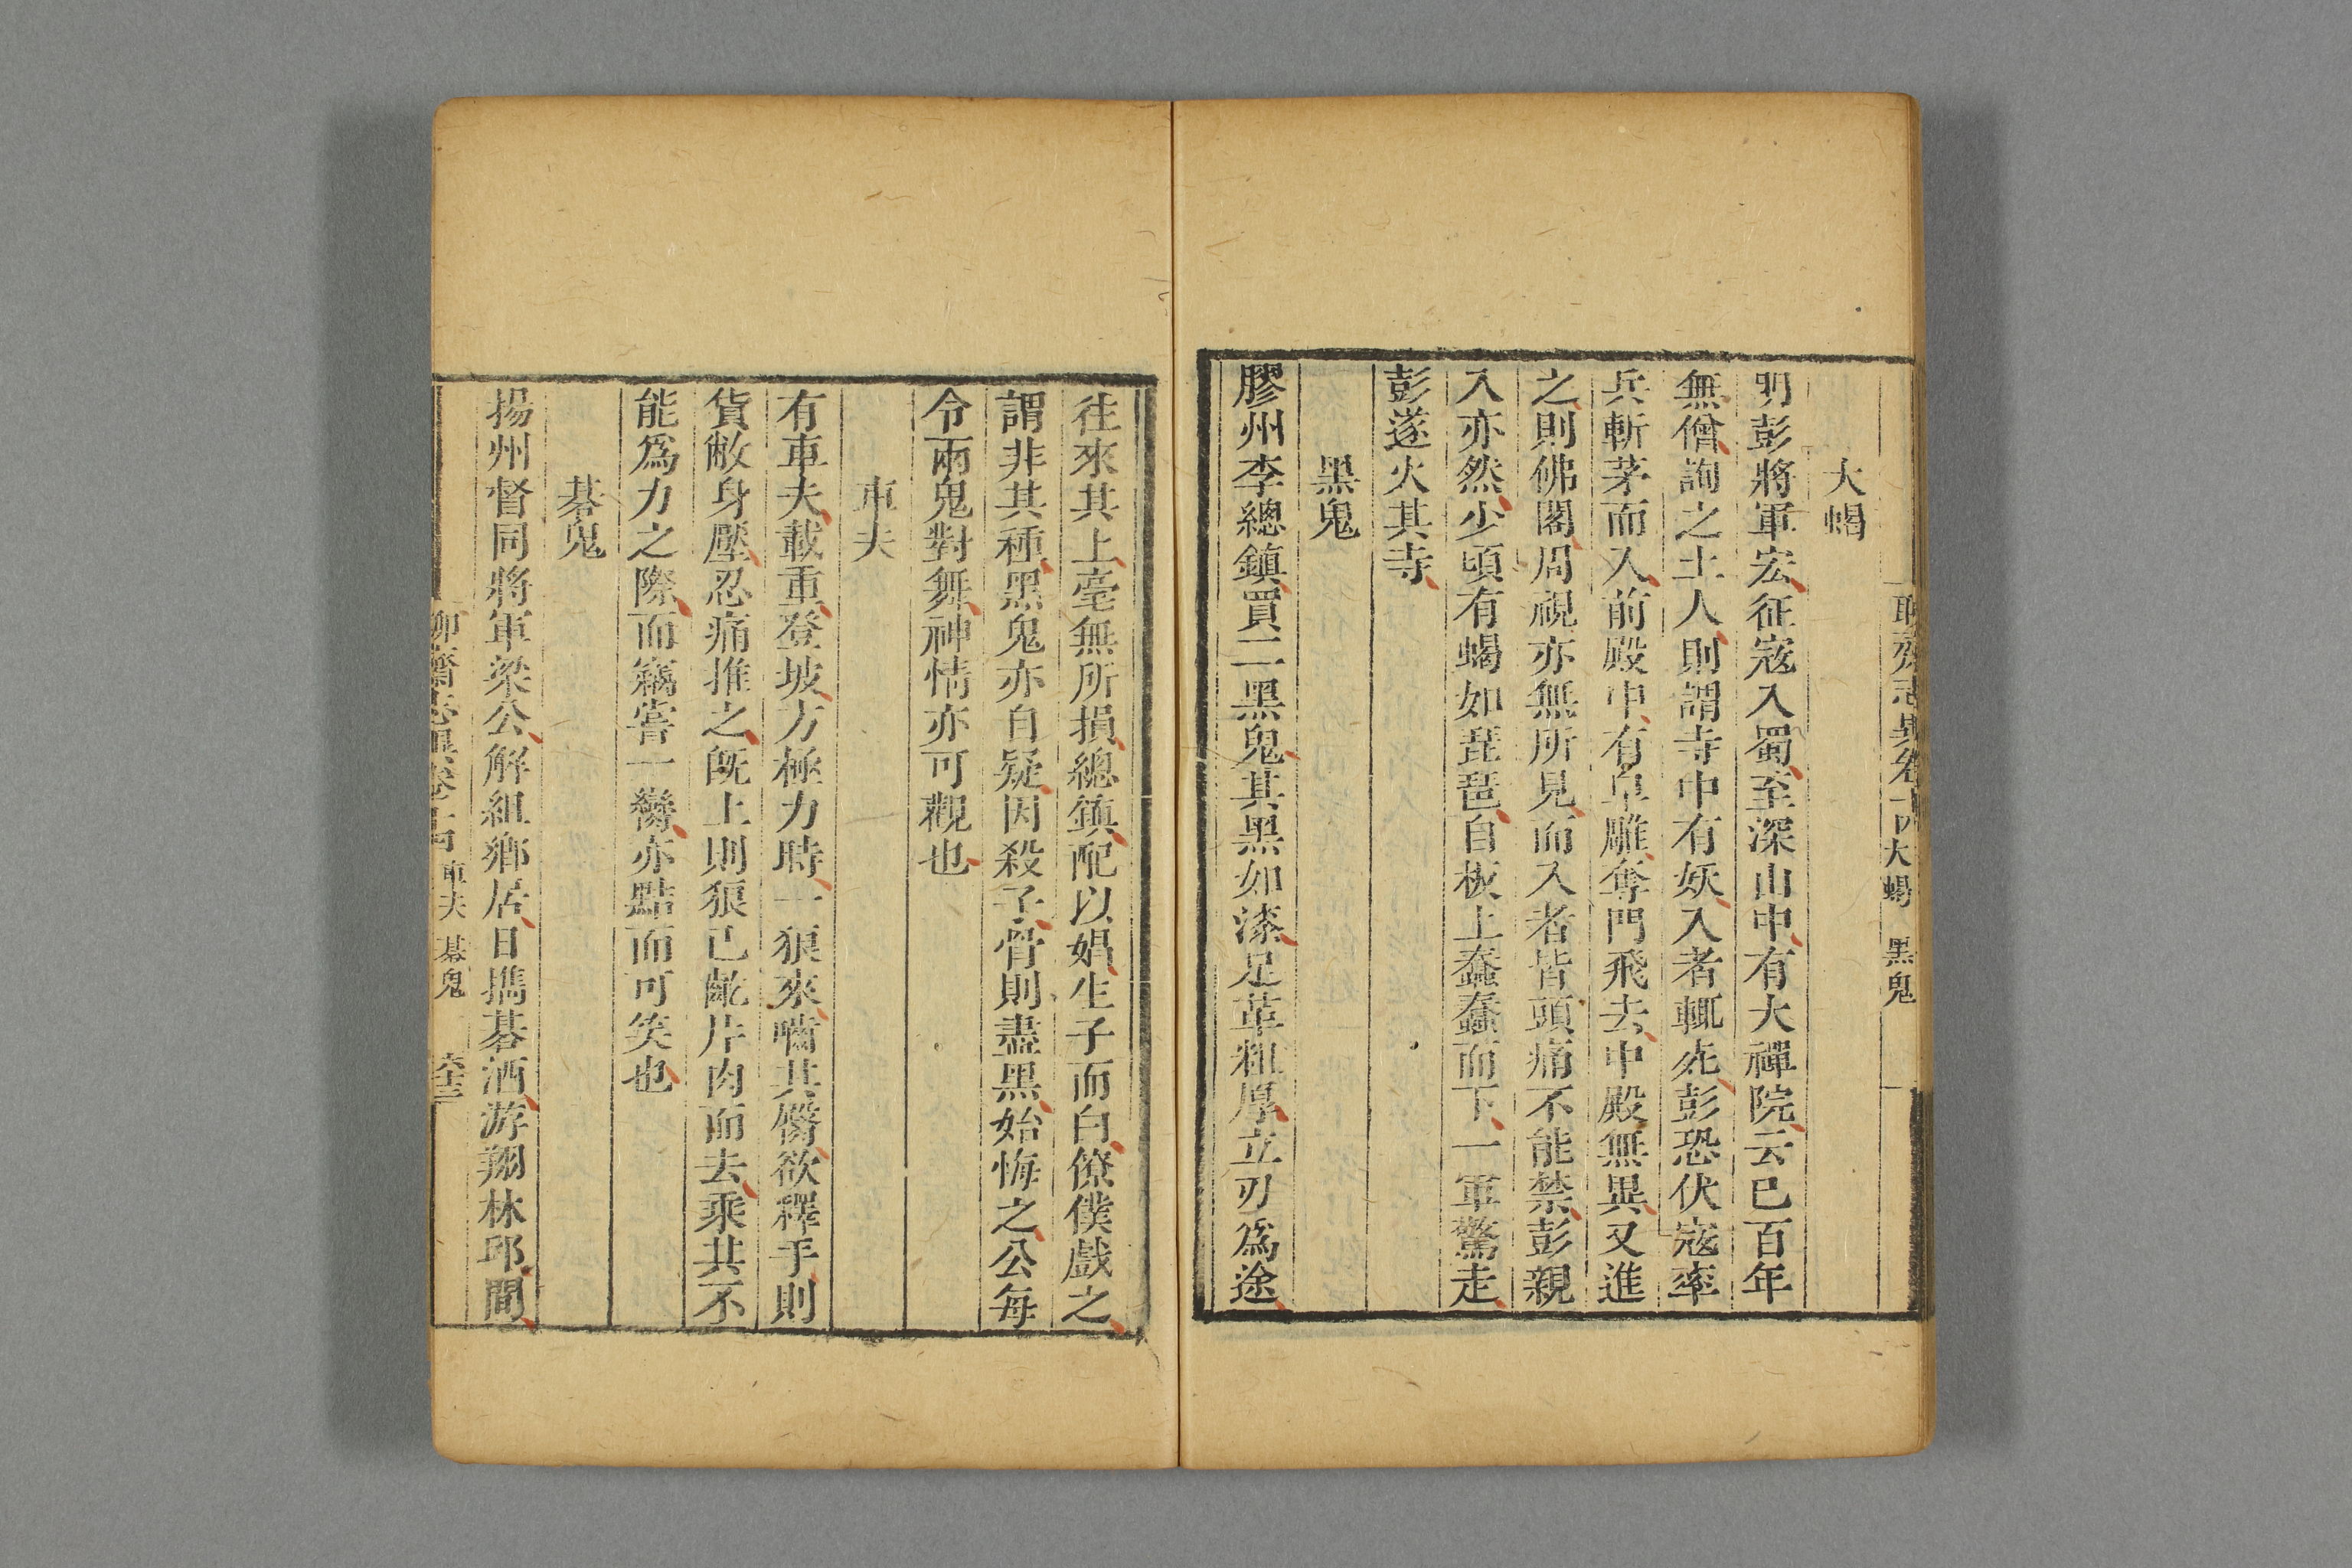 聊齋志異卷十四 大蝎 黑鬼
大蝎
明彭將軍宏征寇入蜀至深山中有大禪院云已百年
無僧詢之土人則謂寺中有妖入者輒死彭恐伏寇率
兵斬茅而入前殿中有皁雕奪門飛去中殿無異又進
之則佛閣周視亦無所見而入者皆頭痛不能禁彭親
入亦然少頃有蝎如琵琶自板上蠢蠢而下一軍驚走
彭遂火其寺
黑鬼
膠州李總鎮買二黑鬼其黑如漆足革粗厚立刃爲途
往來其上毫無所損總鎮配以娼生子而白僚僕戲之
謂非其種黑鬼亦自疑因殺子骨則盡黑始悔之公每
令兩鬼對舞神情亦可觀也
車夫
有車夫載重登坡方極力時一狼來嚙其臀欲釋手則
貨敝身壓忍痛推之旣上則狼已齕片肉而去乘其不
能爲力之際而竊嘗一臠亦黠而可笑也
碁鬼
揚州督同將軍梁公解組鄉居日攜碁酒游翔林邱間
聊齋志異卷十四 車夫 碁鬼